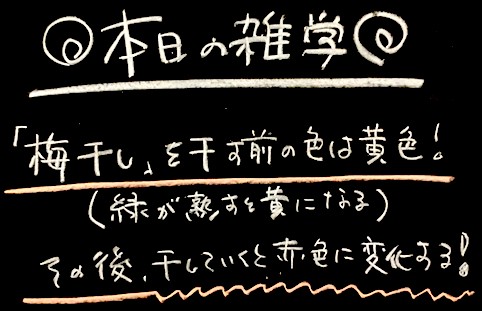 本日の雑学
「梅干し」を干す前の色は黄色!
(緑が熟すと黄になる)
その後、干していくと赤色に変化する!